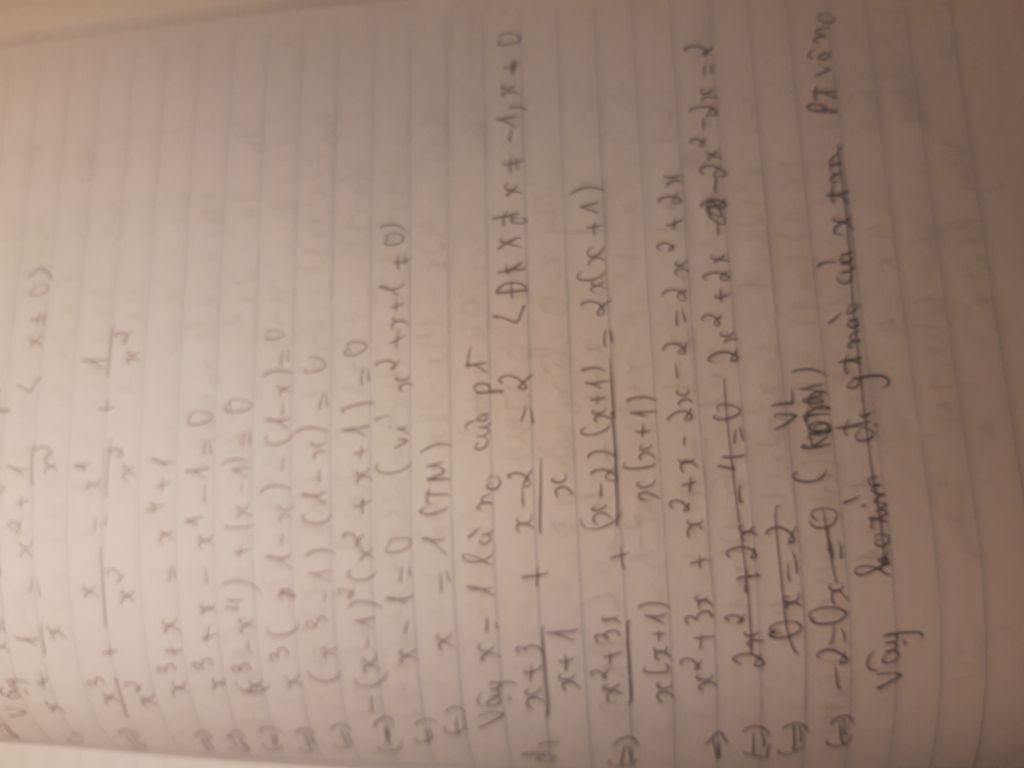 x + 1/x = x² + 1/x² ( x ≠ 0)
x³/x² + x/x² = x⁴/x² + 1/x²
x³ + x = x⁴ + 1
x³ + x - x⁴ - 1 = 0
(x³ - x⁴) + (x - 1) = 0
x³ ( 1 - x) - (1 - x) = 0
(x³ - 1) (1 - x) = 0
-(x - 1)² (x² + x + 1) = 0
x - 1 = 0 (vì x² + x + 1 ≠ 0)
x = 1 (TM)
Vậy x = 1 là no của pT
x+3/x+1 + x-2/x = 2 (ĐKXĐ x ≠ -1, x ≠ 0
x²+3x/x(x+1) + (x-2)(x+1)/x(x+1) = 2x(x+1)
x² + 3x + x² + x - 2x - 2 = 2x² + 2x
2x² + 2x - 4 = 0 2x² + 2x - 2x² - 2x = 2
0x = -2 VL
-2 = 0x
Vậy PT vô no